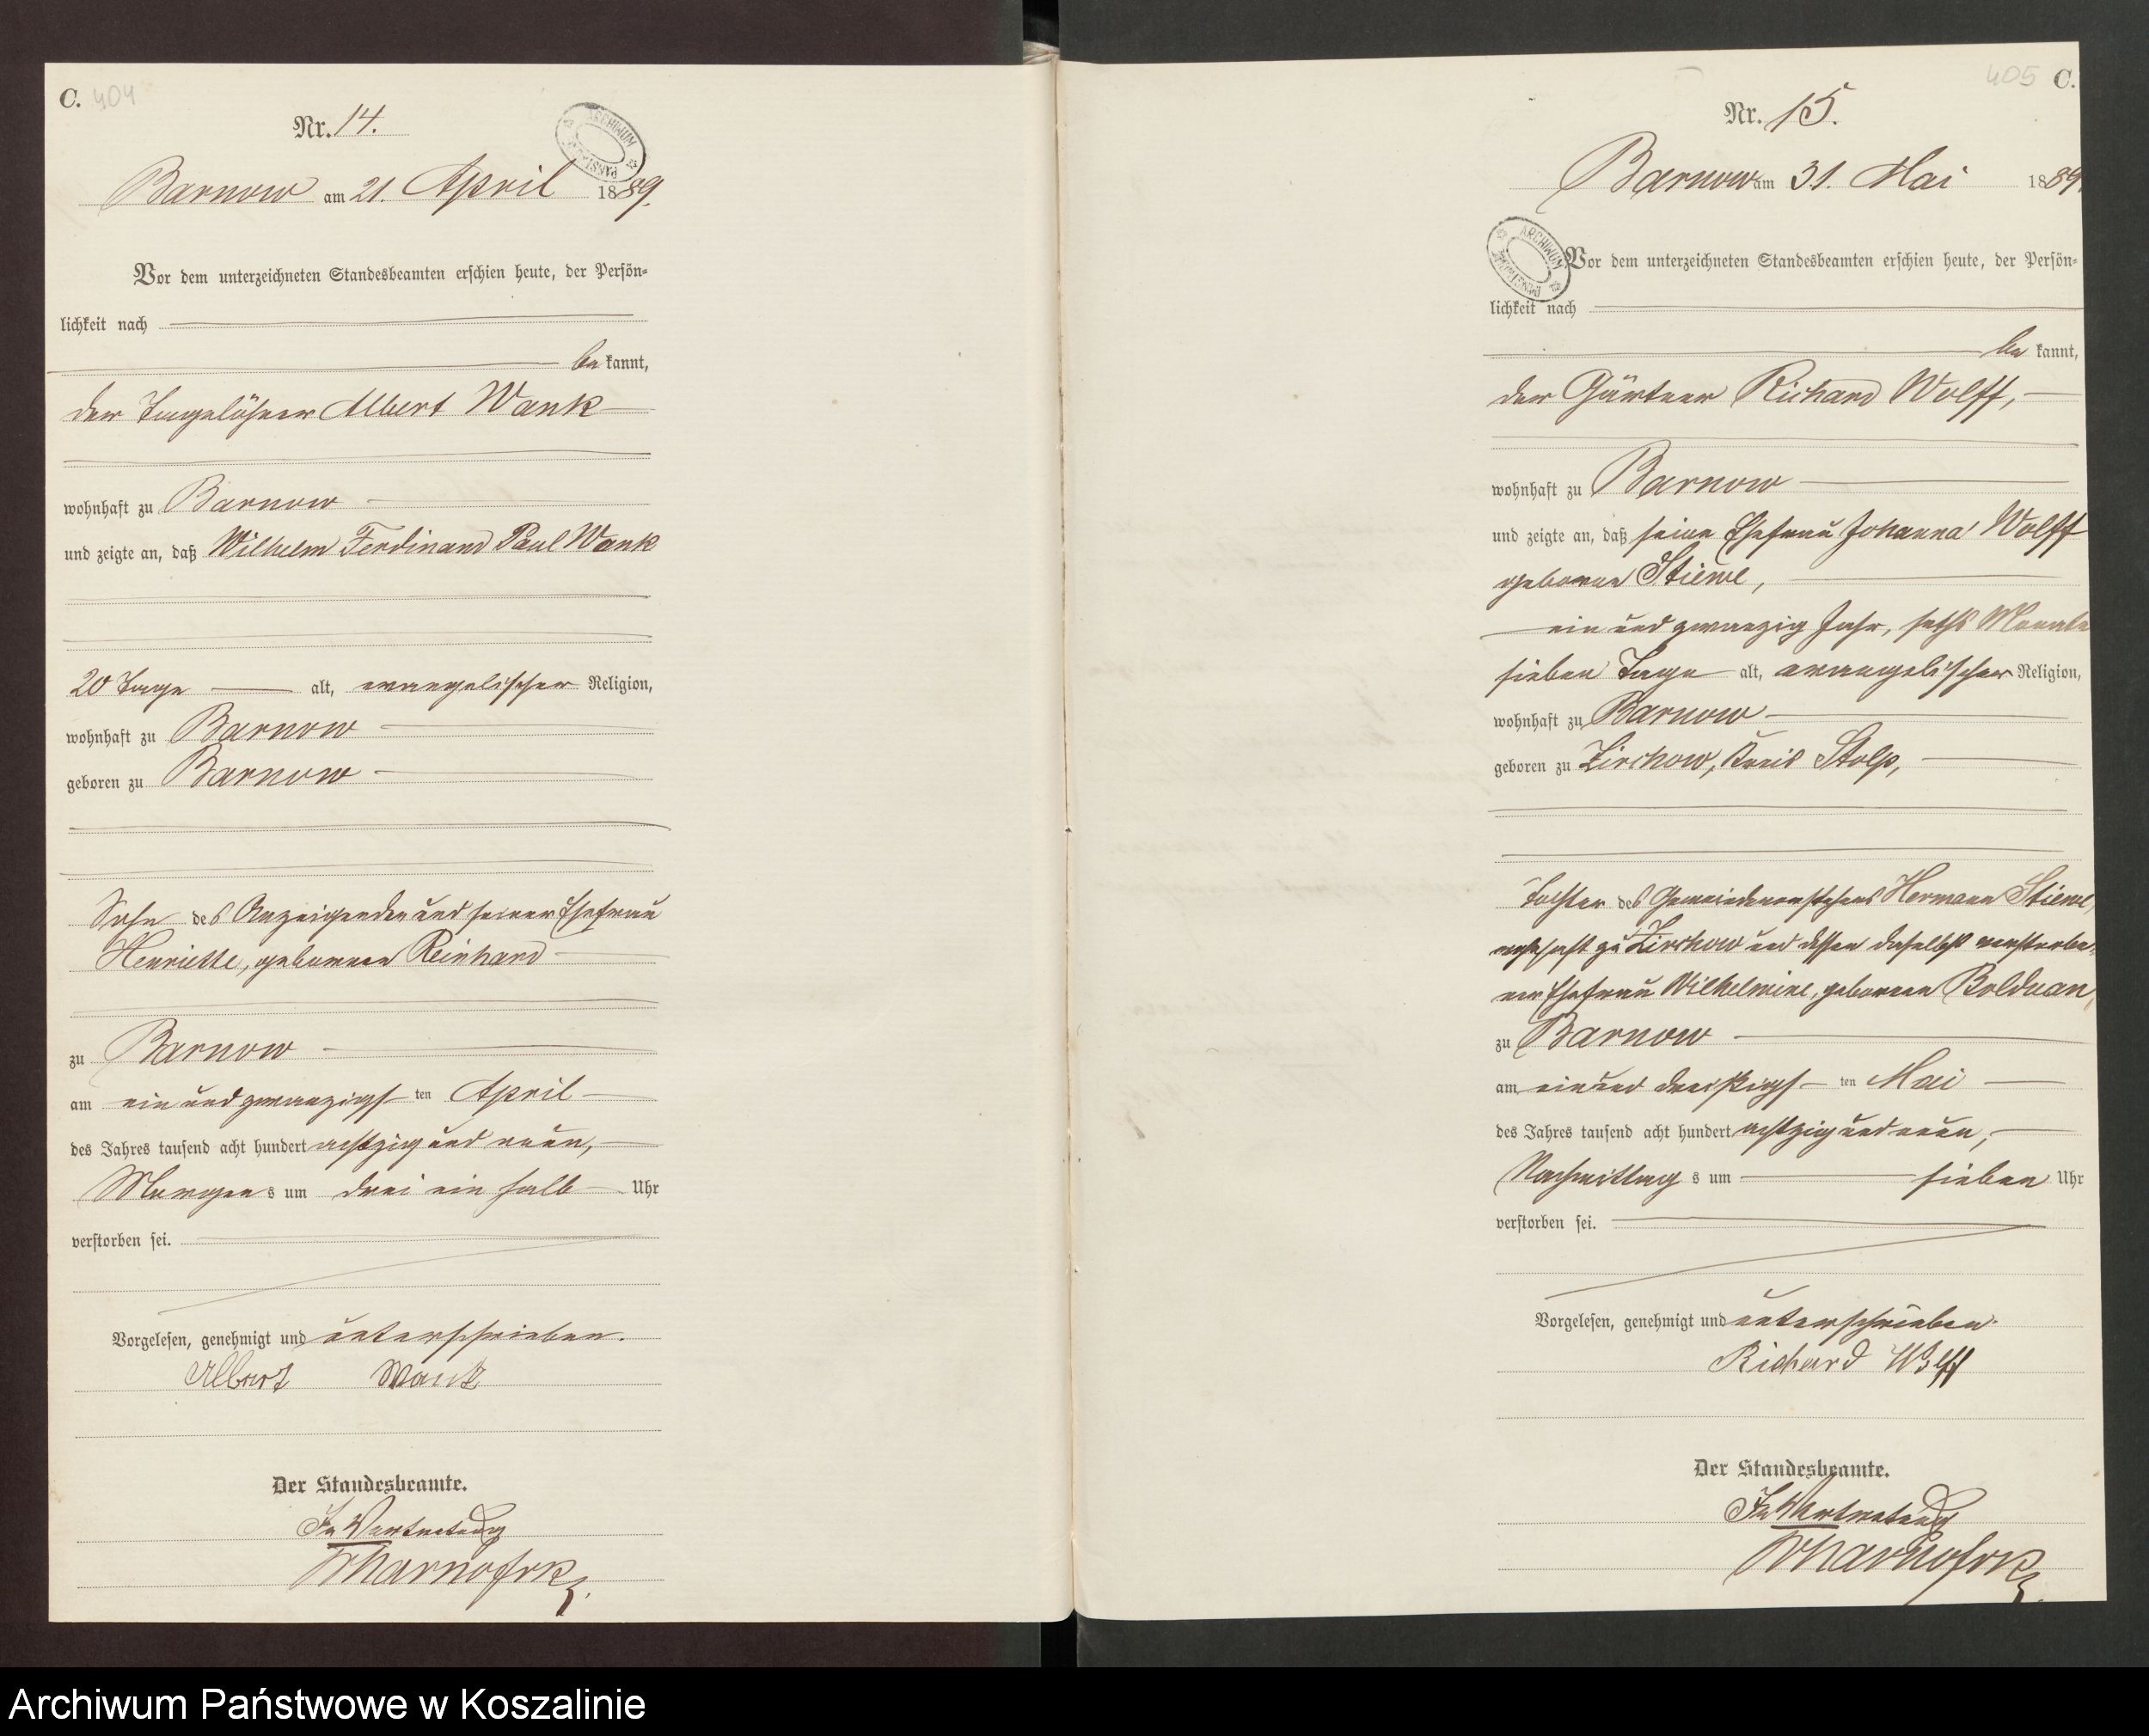 C. 404
Nr. 14.
ARCHIWUM
Barnow am 21. April 1889.
Vor dem unterzeichneten Standesbeamten erschien heute, der Persön-
lichkeit nach
be kannt,
der Tagelöhner Albert Wank
wohnhaft zu Barnow
und zeigte an, daß Wilhelm Ferdinand Paul Wank
20 Tage alt, evangelischer Religion,
wohnhaft zu Barnow
geboren zu Barnow
Sohn des Anzeigenden und seiner Ehefrau
Henriette, geborenen Reinhard
zu Barnow
am ein und zwanzigs ten April
des Jahres tausend acht hundert achtzig und neun,
Morgens um drei ein halb Uhr
verstorben sei.
Vorgelesen, genehmigt und unterschrieben.
Albert Wank
Der Standesbeamte.
In Vertretung
405 C.
Nr. 15.
Barnow am 31. Mai 1889.
ARCHIWUM
Vor dem unterzeichneten Standesbeamten erschien heute, der Persön-
lichkeit nach
be kannt,
der Gärtner Richard Wolff,
wohnhaft zu Barnow
und zeigte an, daß seine Ehefrau Johanna Wolff
geborene Stiewe,
ein und zwanzig Jahr, sechs Monate
sieben Tage alt, evangelischer Religion,
wohnhaft zu Barnow
geboren zu Zirchow, Kreis Stolp,
Tochter des Gemeindevorstehers Hermann Stiewe,
wohnhaft zu Zirchow und dessen daselbst verstorbe-
ner Ehefrau Wilhelmine, geborenen Bolduan,
zu Barnow
am ein und dreißigs ten Mai
des Jahres tausend acht hundert achtzig und neun,
Nachmittags um sieben Uhr
verstorben sei.
Vorgelesen, genehmigt und unterschrieben.
Richard Wolff
Der Standesbeamte.
In Vertretung
Archiwum Państwowe w Koszalinie